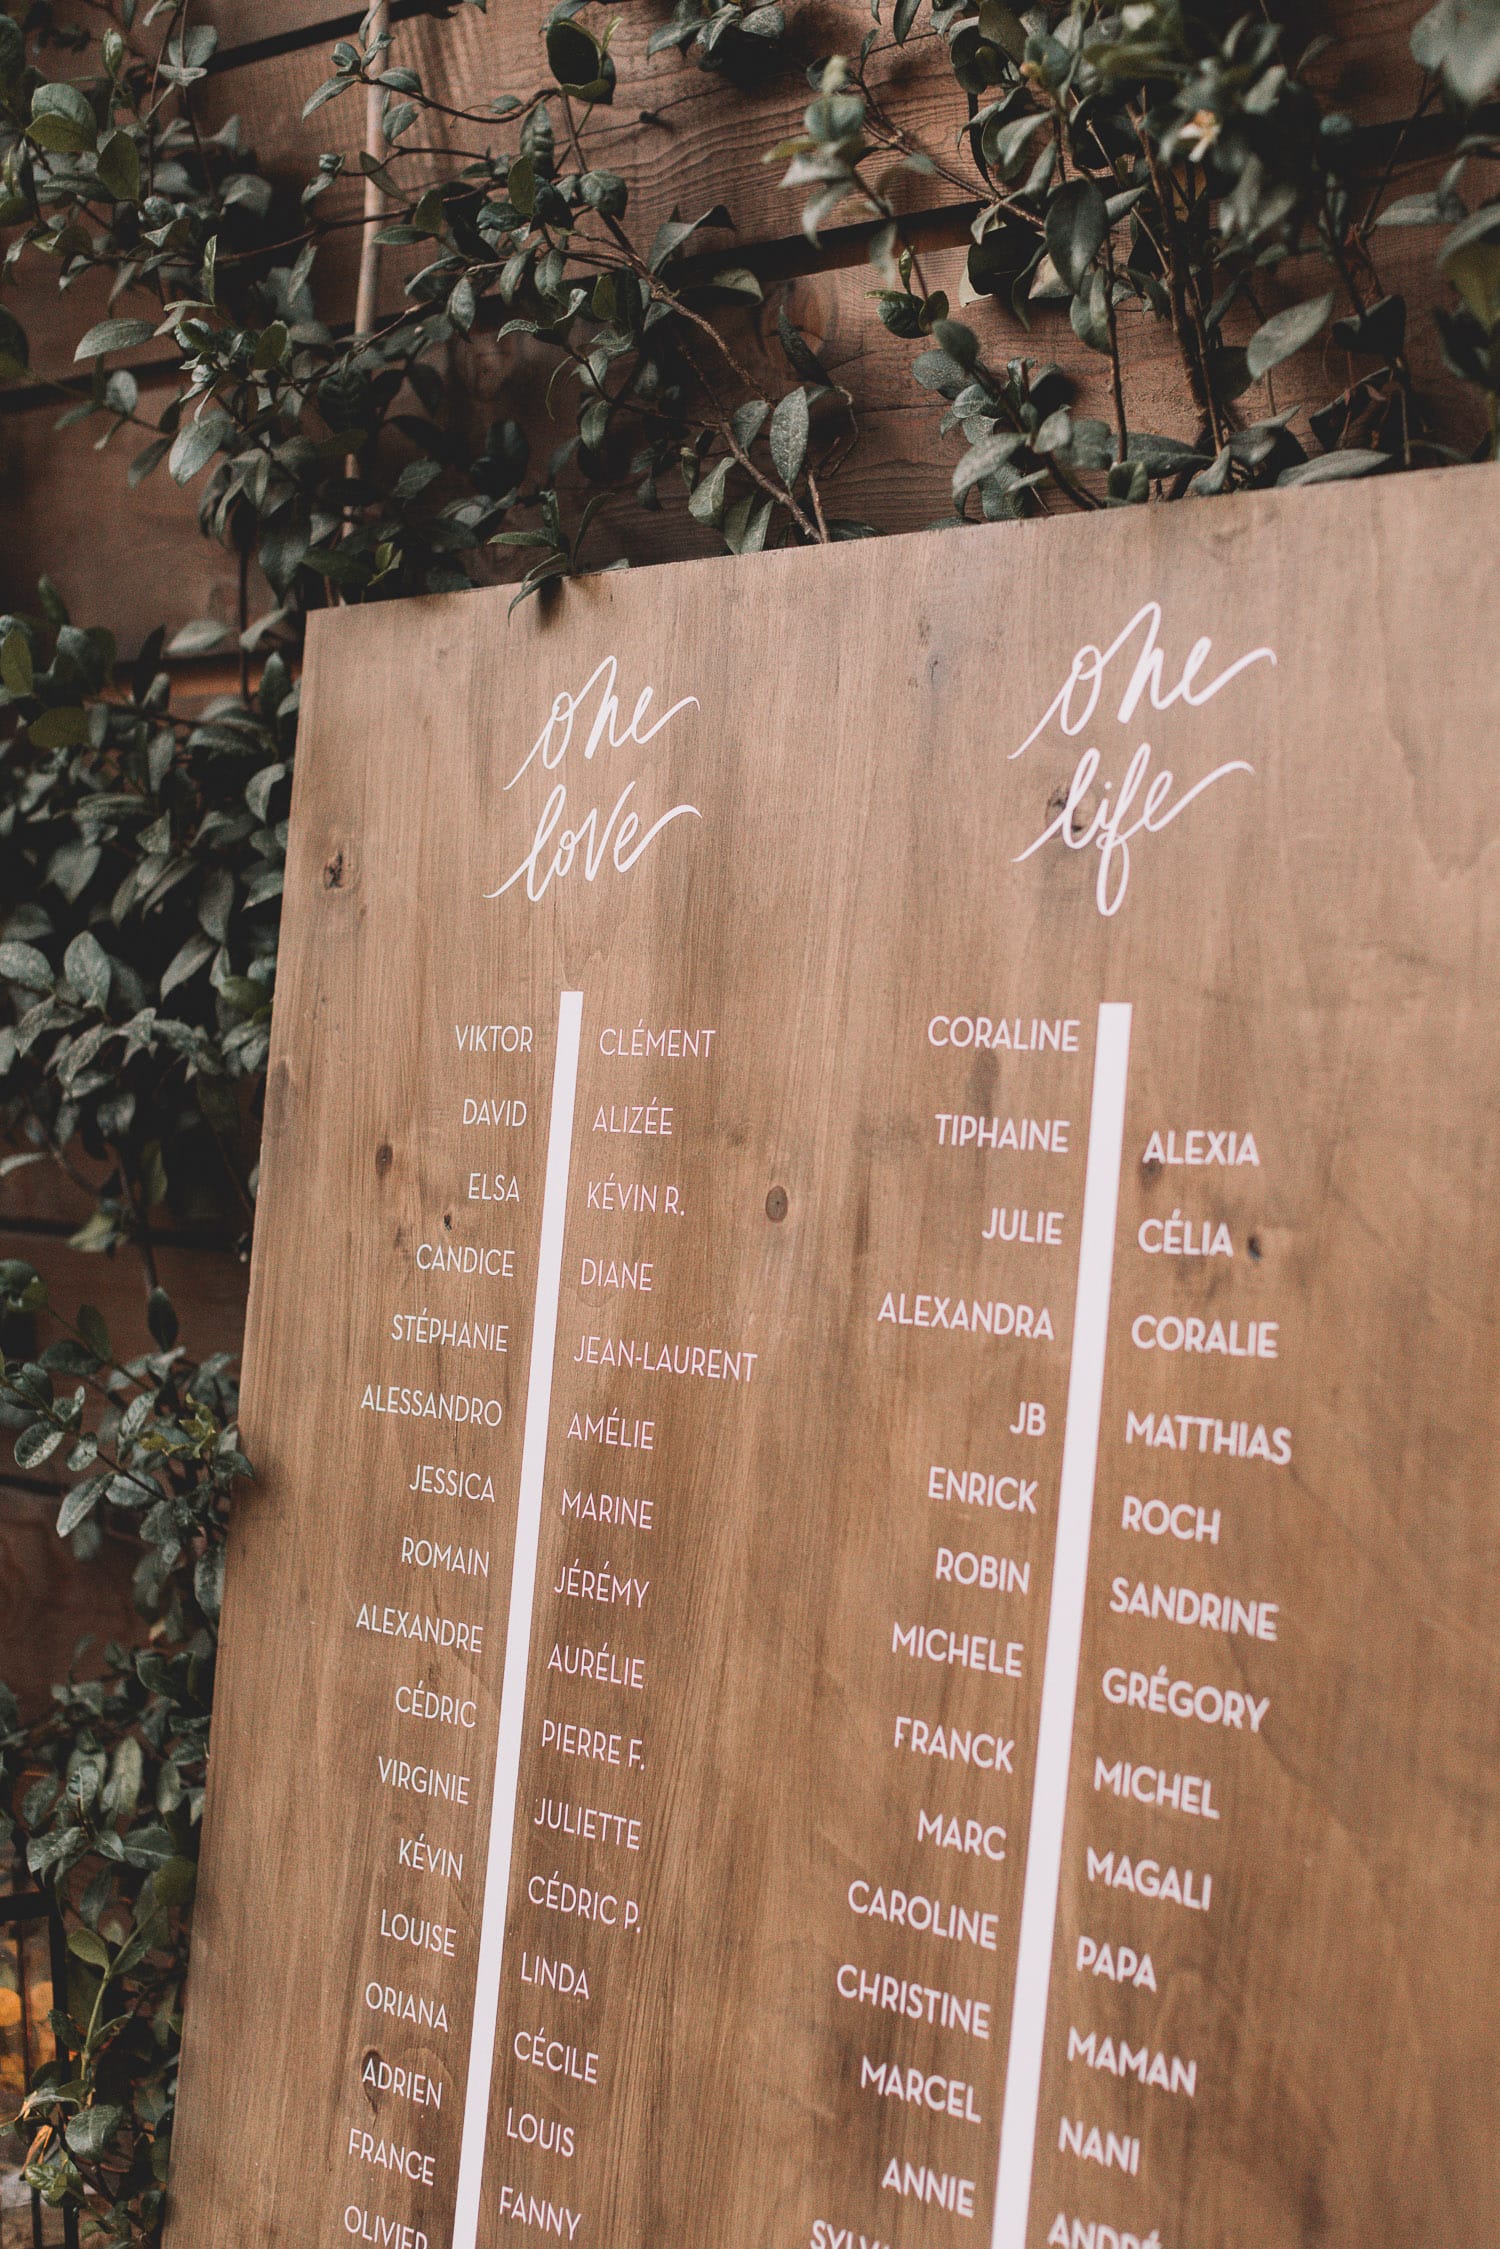 one
love
VIKTOR
DAVID
ELSA
CANDICE
STÉPHANIE
ALESSANDRO
JESSICA
ROMAIN
ALEXANDRE
CÉDRIC
VIRGINIE
KÉVIN
LOUISE
ORIANA
ADRIEN
FRANCE
OLIVIER
CLÉMENT
ALIZÉE
KÉVIN R.
DIANE
JEAN-LAURENT
AMÉLIE
MARINE
JÉRÉMY
AURÉLIE
PIERRE F.
JULIETTE
CÉDRIC P.
LINDA
CÉCILE
LOUIS
FANNY
one
life
CORALINE
TIPHAINE
JULIE
ALEXANDRA
JB
ENRICK
ROBIN
MICHELE
FRANCK
MARC
CAROLINE
CHRISTINE
MARCEL
ANNIE
ALEXIA
CÉLIA
CORALIE
MATTHIAS
ROCH
SANDRINE
GRÉGORY
MICHEL
MAGALI
PAPA
MAMAN
NANI
ANDRÉ